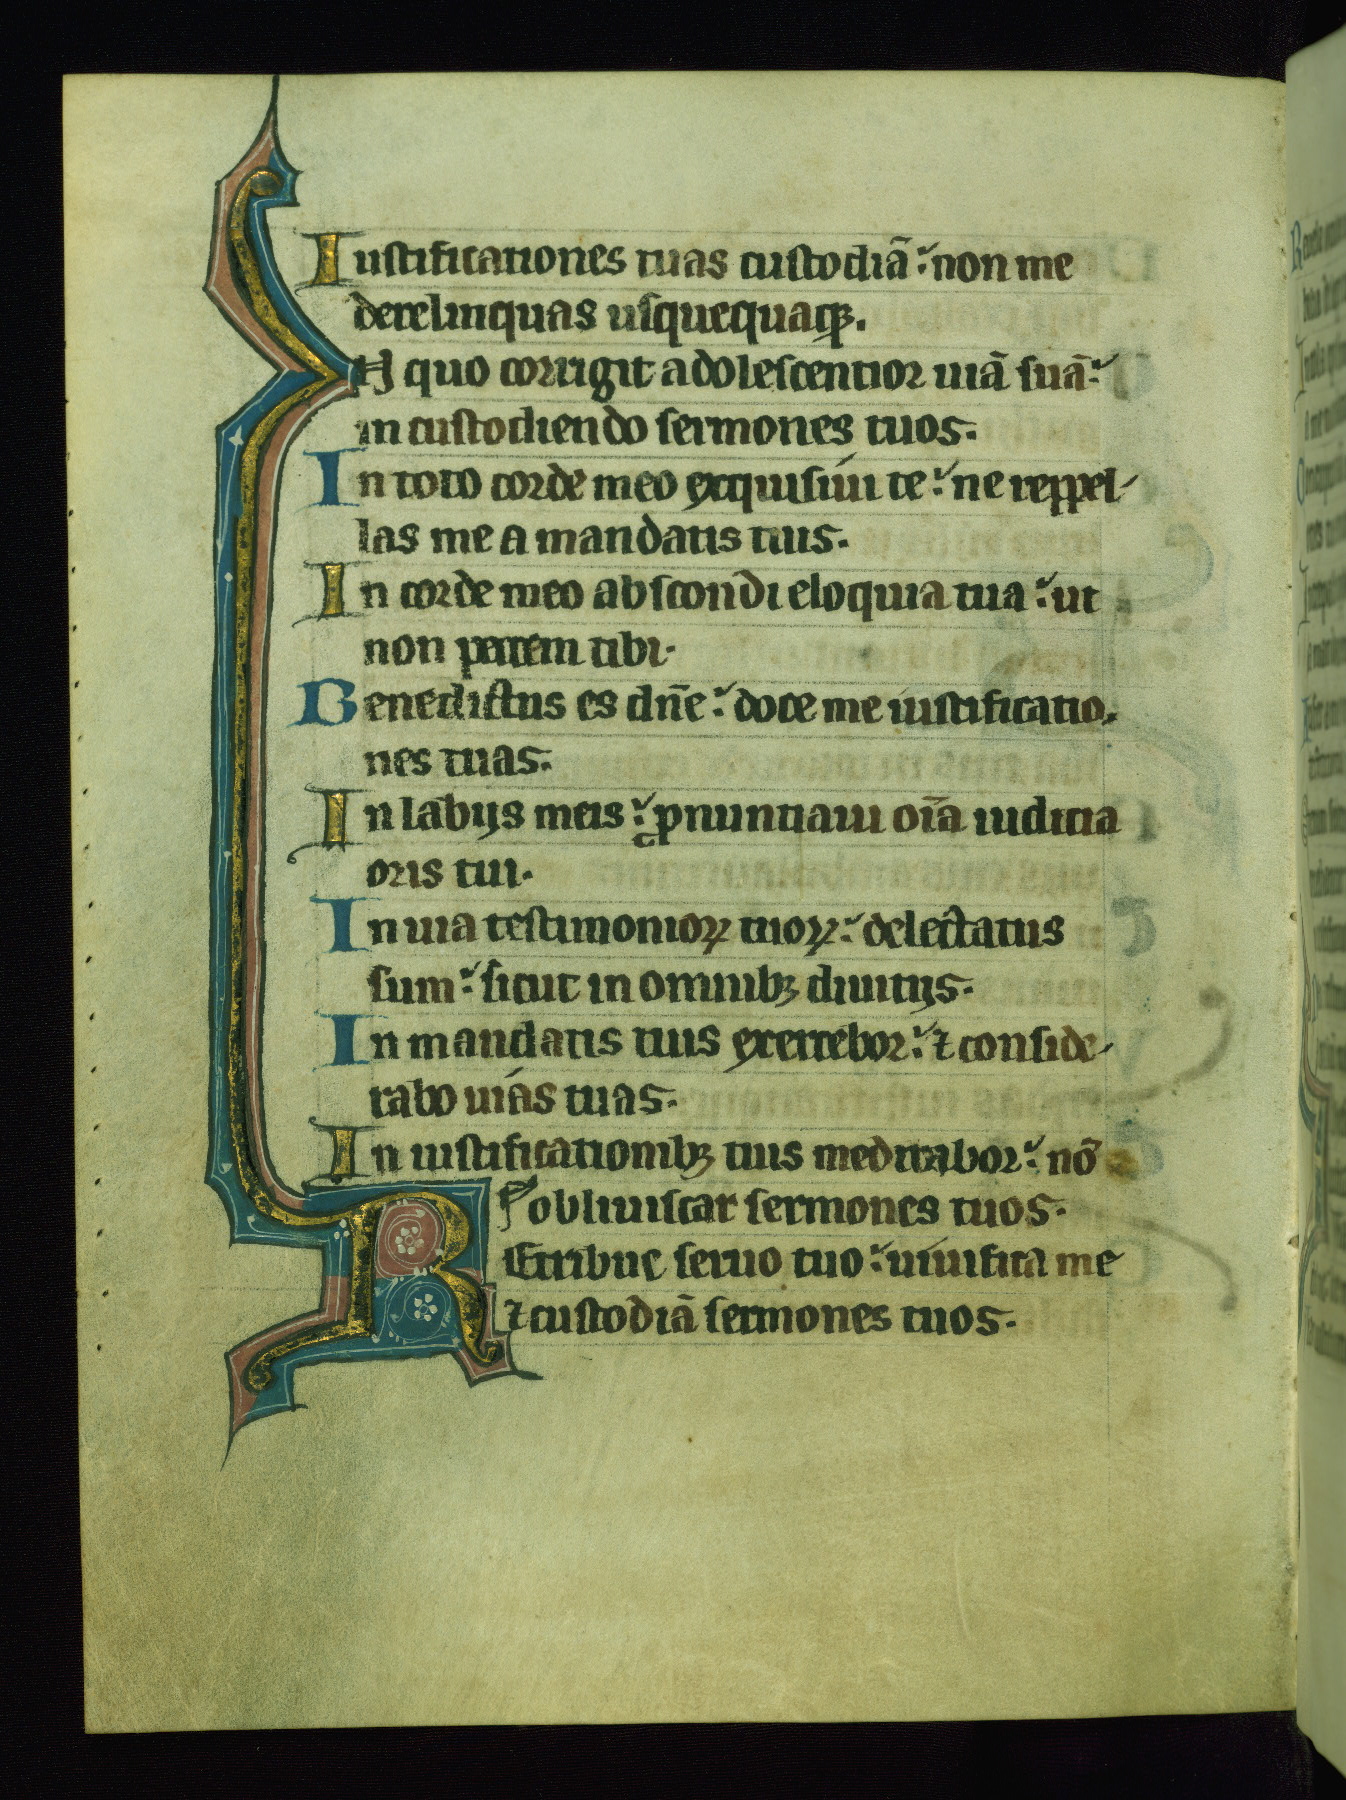 Iustificationes tuas custodiā: non me
derelinquas usquequaqꝫ.
In quo corrigit adolescentior uiā suā:
in custodiendo sermones tuos.
In toto corde meo exquisiui te: ne reppel-
las me a mandatis tuis.
In corde meo abscondi eloquia tua: ut
non peccem tibi.
Benedictus es dn̄e: doce me iustificatio-
nes tuas.
In labijs meis: ꝓnuntiaui oīa iudicia
oris tui.
In uia testimonioꝝ tuoꝝ: delectatus
sum: sicut in omnibꝫ diuitijs.
In mandatis tuis exercebor: ⁊ conside-
rabo uias tuas.
In iustificationibꝫ tuis meditabor: nō
obliuiscar sermones tuos.
REtribue seruo tuo: uiuifica me
⁊ custodiā sermones tuos.